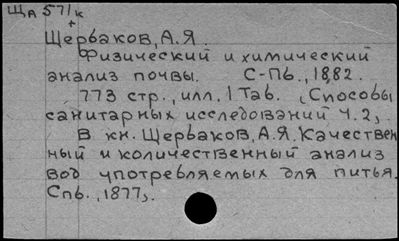 ЩА 57/к
+
Щербаков, А.Я.
Физический и химический
анализ почвы. С-Пб., 1882.
773 стр., илл. 1 Таб. (Способы
санитарных исследований Ч.2).
В кн. Щербаков, А.Я. Качествен
ный и количественный анализ
вод употребляемых для питья.
Спб., 1877).